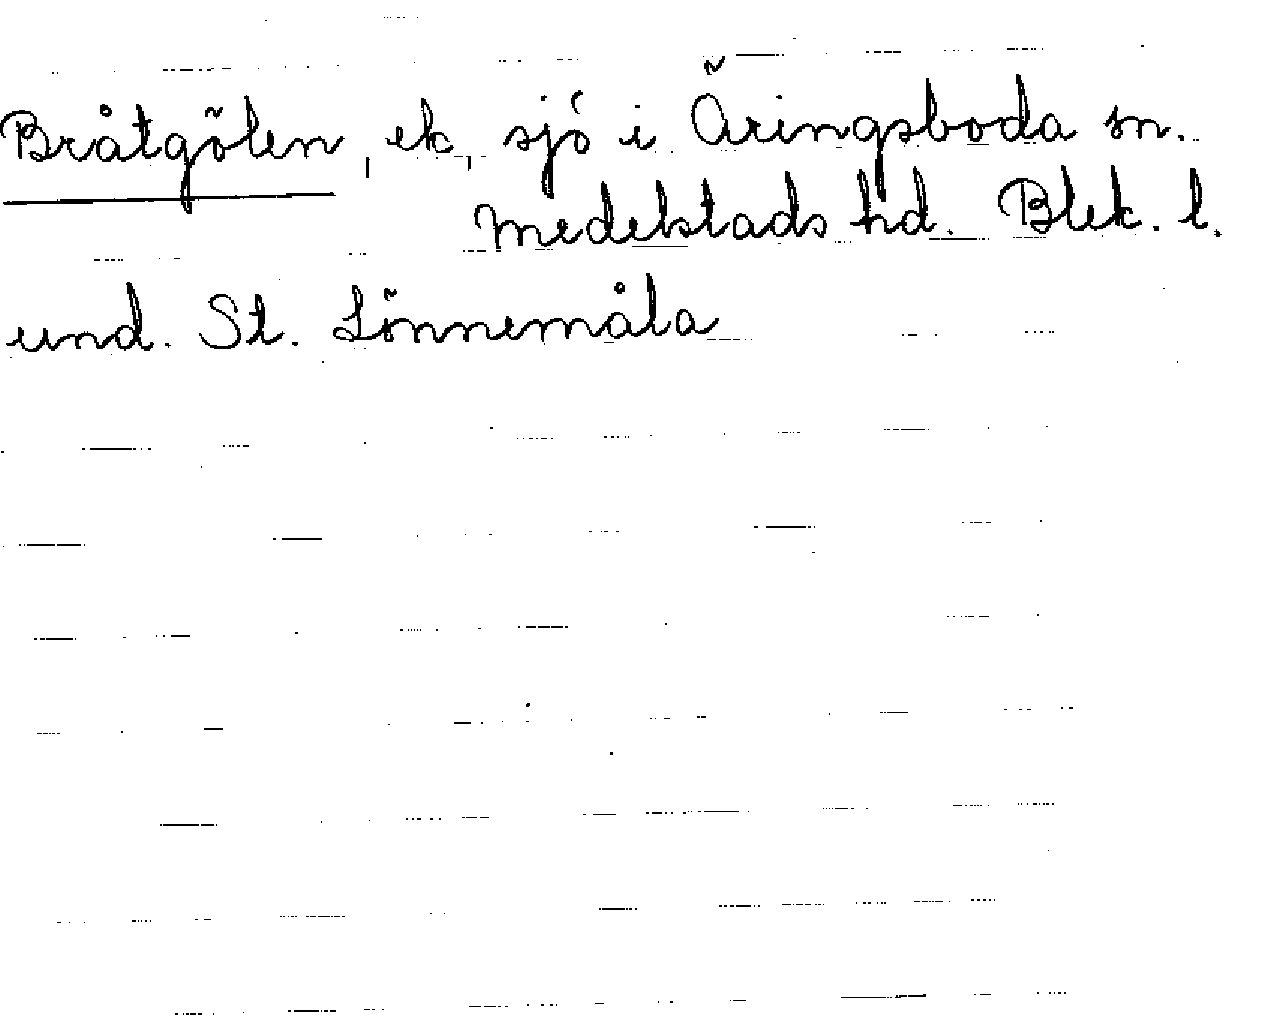 Bråtgölen, ek, sjö i Äringsboda sn.
Medelstads hd. Blek. l.
und. St. Lönnemåla